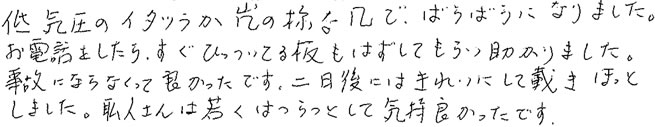 低気圧のイタヅラか嵐の様な風で、ばらばらになりました。
お電話をしたら、すぐひっついてる板もはずしてもらい助かりました。
事故にならなくって良かったです。二日後にはきれいにして戴きほっと
しました。職人さんは若くはつらつとして気持良かったです。